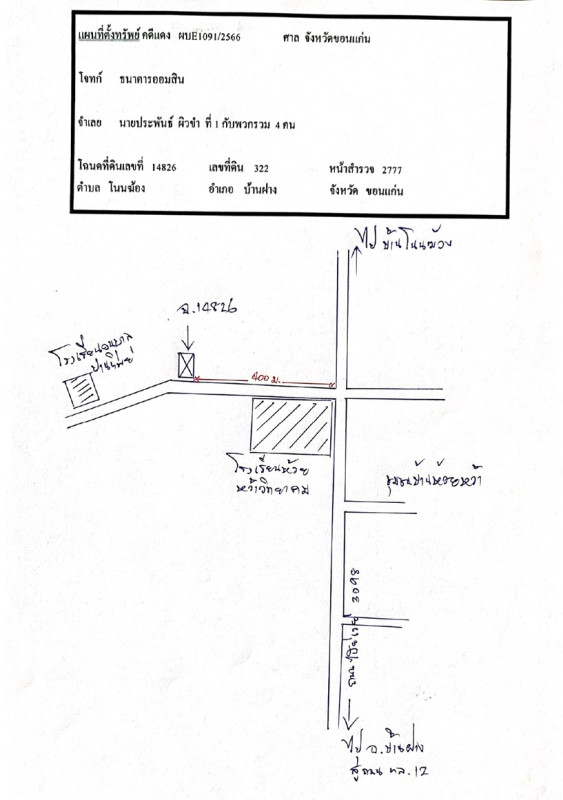 แผนที่ตั้งทรัพย์ คดีแดง ผบE1091/2566 ศาล จังหวัดขอนแก่น
โจทก์ ธนาคารออมสิน
จำเลย นายประพันธ์ ผิวขำ ที่ 1 กับพวกรวม 4 คน
โฉนดที่ดินเลขที่ 14826 เลขที่ดิน 322 หน้าสำรวจ 2777
ตำบล โนนฆ้อง อำเภอ บ้านฝาง จังหวัด ขอนแก่น
ไป บ้านโนนฆ้อง
ฉ.14826
โรงเรียนอนุบาล
400 ม.
โรงเรียนห้วย
หว้าวิทยาคม
ชุมชนบ้านห้วยหว้า
3098
ไป อ.บ้านฝาง
สู่ถนน ทล.12